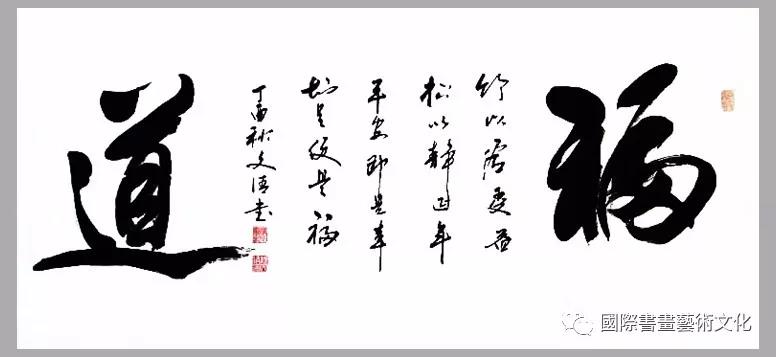 福
竹以虚受益
松以静延年
平安即是幸
知足便是福
丁酉秋文清书
道
國際書畫藝術文化